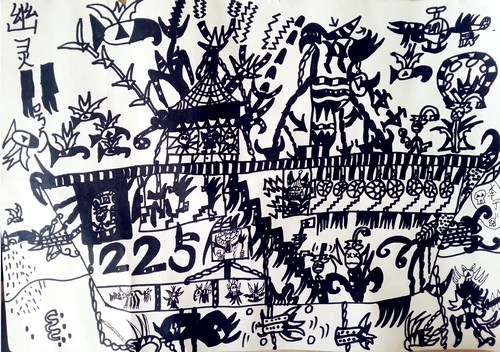 幽灵号
225